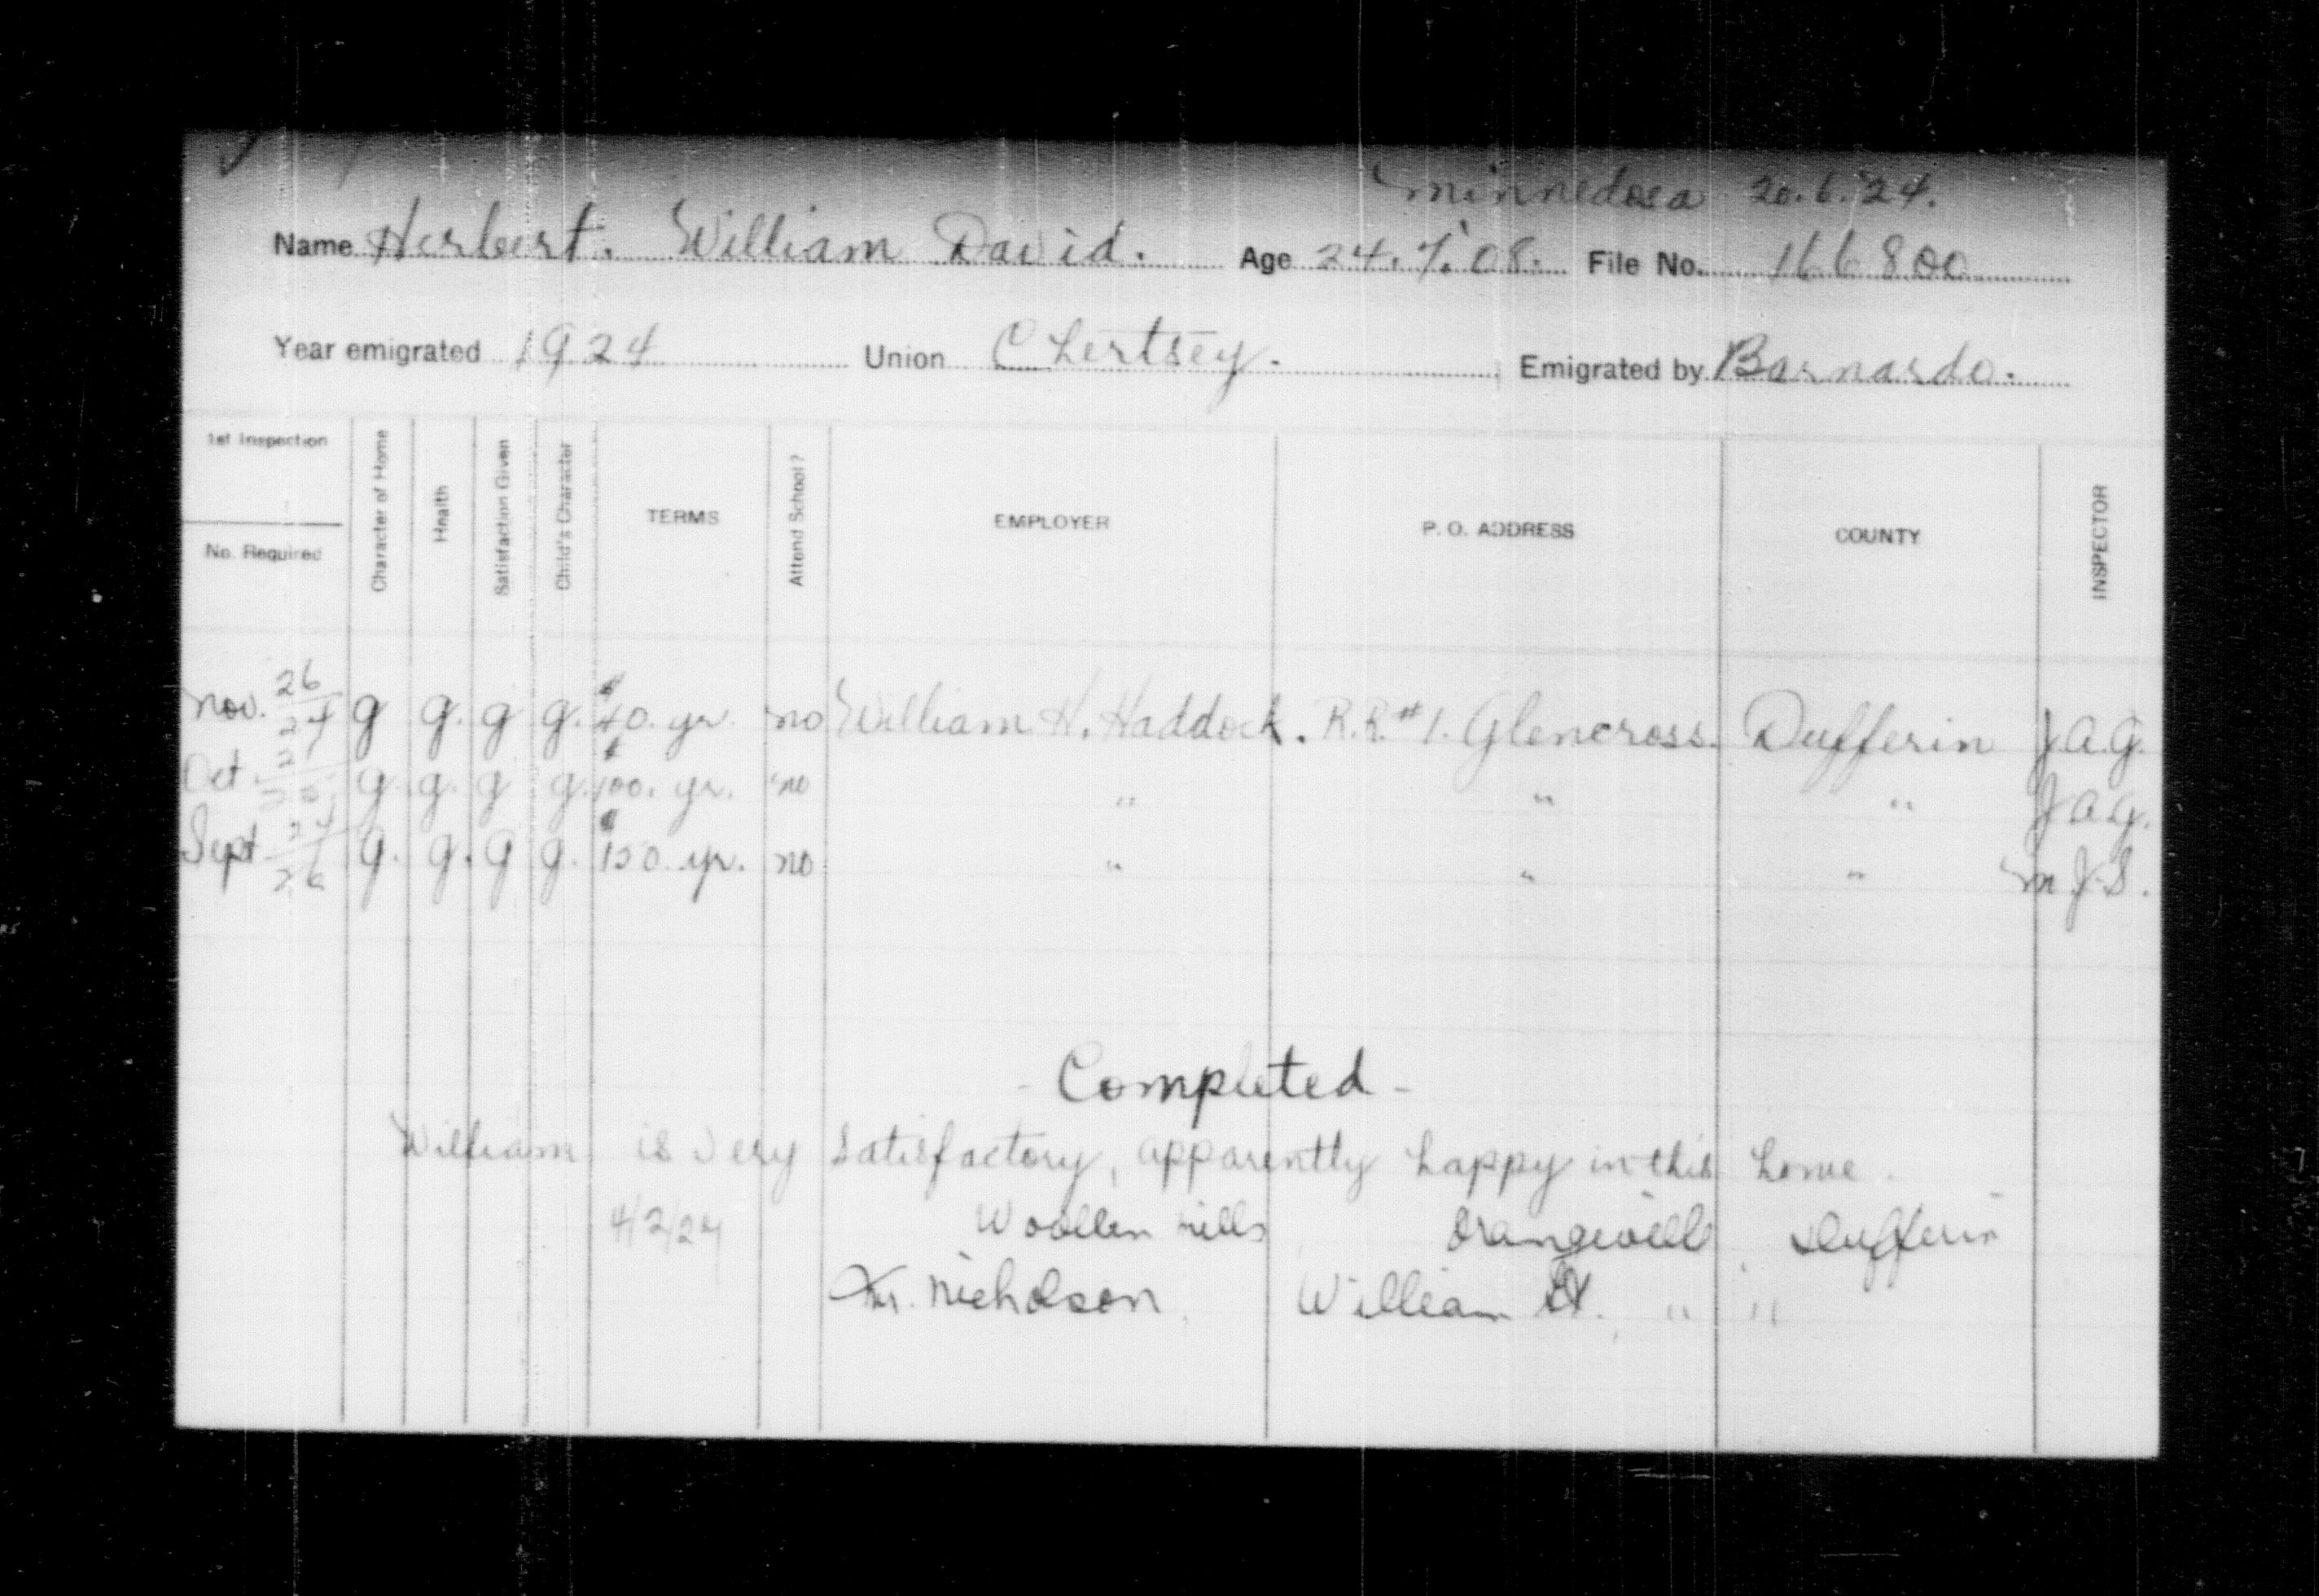 Minnedosa 20.6.24.
Name Herbert. William David. Age 24.7.08. File No. 166800
Year emigrated 1924 Union Chertsey. Emigrated by Barnardo.
1st Inspection
No. Required
Character of Home
Health
Satisfaction Given
Child's Character
TERMS
Attend School?
EMPLOYER
P. O. ADDRESS
COUNTY
INSPECTOR
Nov. 26/24 g g. g g. $40. yr. no William H. Haddock. R.R.#1. Glencross. Dufferin J.A.G.
Oct. g. g. g g. $100. yr. no " " " J.A.G.
Sept 24/26 g. g. g g. $150. yr. no " " " M.J.S.
- Completed -
William is very satisfactory, apparently happy in this home.
Woollen Mills Orangeville, Dufferin
Nicholson William St. " "